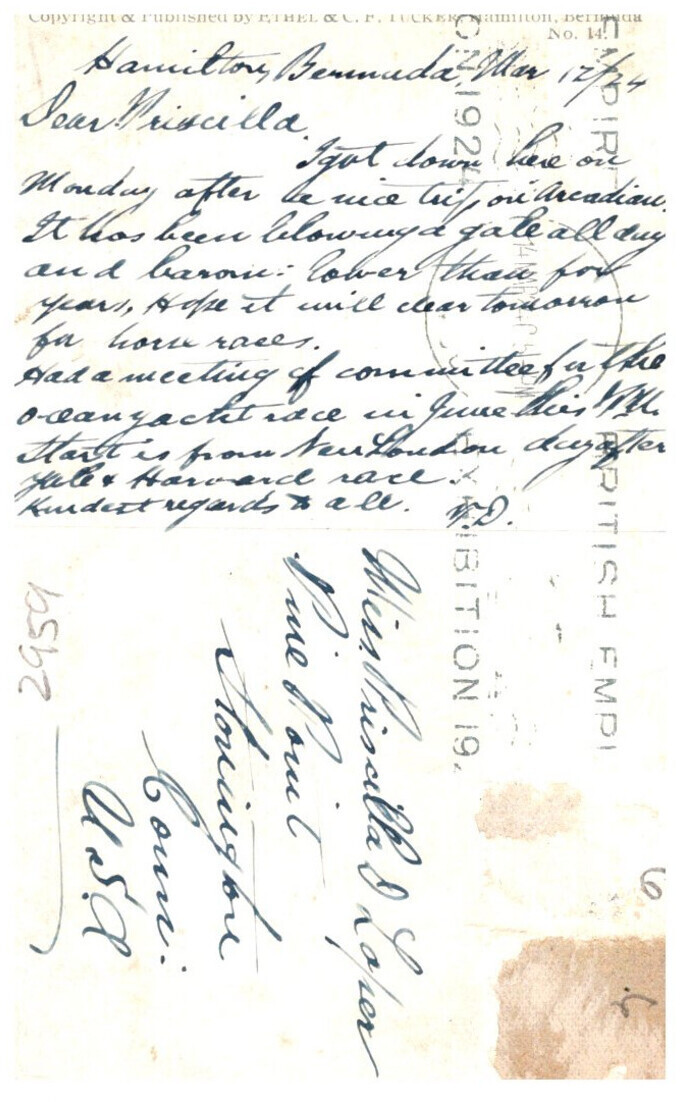 Copyright & Published by ETHEL & C. F. TUCKER, Hamilton, Bermuda
No. 14.
Hamilton, Bermuda, Mar 12/24
Dear Priscilla,
I got down here on
Monday after a nice trip on Arcadian.
It has been blowing a gale all day
and barom: lower than for
years, Hope it will clear tomorrow
for horse races.
Had a meeting of committee for the
ocean yacht race in June this
start is from New London day after
Yale & Harvard race.
Kindest regards to all. V.D.
Miss Priscilla D Loper
Pine Point
Stonington
Conn:
U.S.A
2659
EMPIRE
BRITISH EMPI
ON 1924
EXHIBITION 19.
6